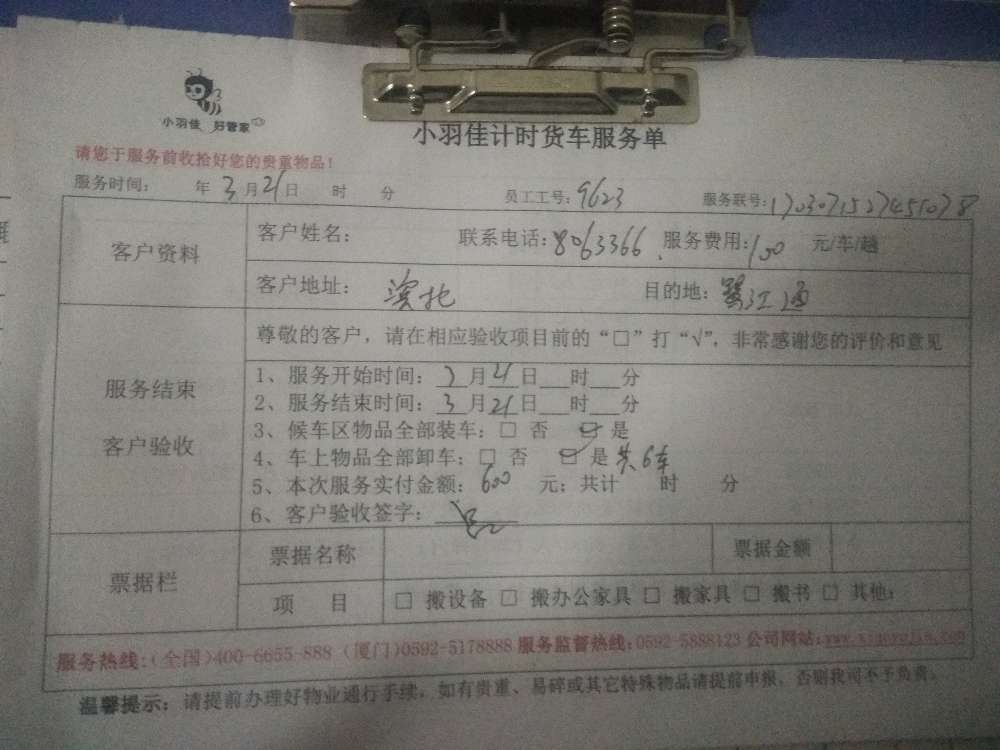 小羽佳 好管家
小羽佳计时货车服务单
请您于服务前收拾好您的贵重物品！
服务时间： 年 3 月 21 日 时 分 员工工号：9623 服务联号：1703071527451078
客户资料 客户姓名： 联系电话：8063366 服务费用：100 元/车/趟
客户地址： 滨北 目的地：
尊敬的客户，请在相应验收项目前的“□”打“√”，非常感谢您的评价和意见
服务结束
客户验收
1、服务开始时间：3月21日___时___分
2、服务结束时间：3月21日___时___分
3、候车区物品全部装车：□ 否 ☑ 是
4、车上物品全部卸车：□ 否 ☑ 是 共6车
5、本次服务实付金额：600 元；共计 时 分
6、客户验收签字：
票据栏 票据名称 票据金额
项 目 □ 搬设备 □ 搬办公家具 □ 搬家具 □ 搬书 □ 其他：
服务热线：（全国）400-6655-888 （厦门）0592-5178888 服务监督热线：0592-5888123 公司网站：
温馨提示：请提前办理好物业通行手续，如有贵重、易碎或其它特殊物品请提前申报，否则我司不予负责。